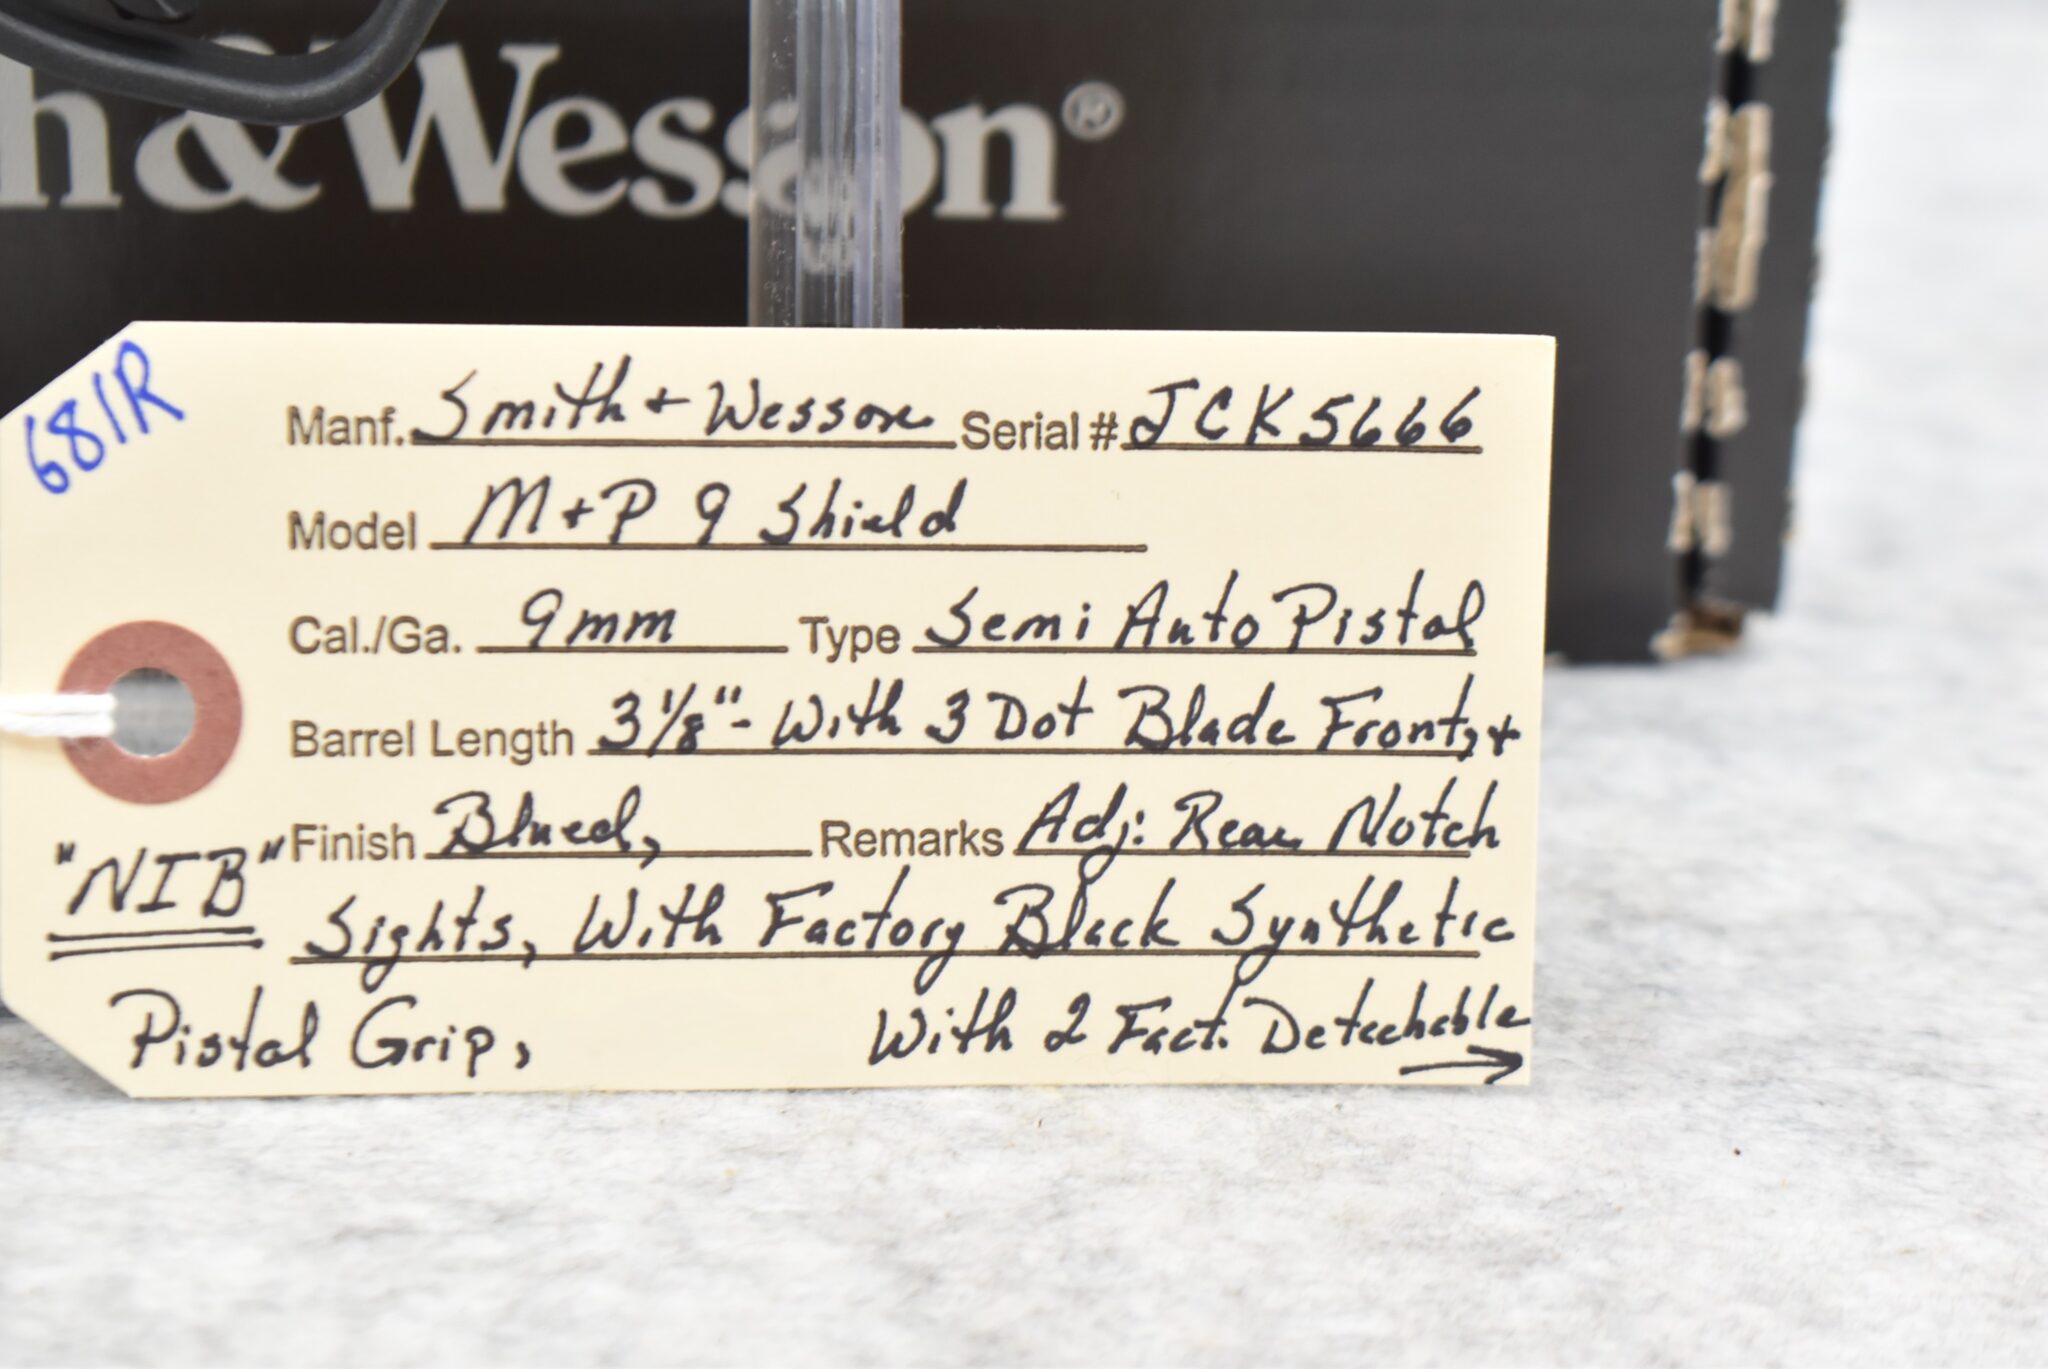 h&Wesson®
681R
Manf. Smith + Wesson Serial # JCK5666
Model M+P 9 Shield
Cal./Ga. 9mm Type Semi Auto Pistol
Barrel Length 3 1/8" - With 3 Dot Blade Front, +
Finish Blued, Remarks Adj: Rear Notch
"NIB" Sights, With Factory Black Synthetic
Pistol Grip, With 2 Fact. Detachable →